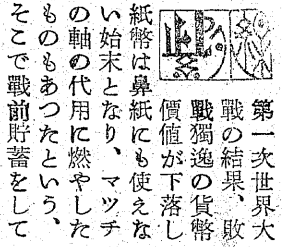 第一次世界大
戰の結果、敗
戰獨逸の貨幣
價値が下落し
紙幣は鼻紙にも使えな
い始末となり、マツチ
の軸の代用に燃やした
ものもあつたという、
そこで戰前貯蓄をして